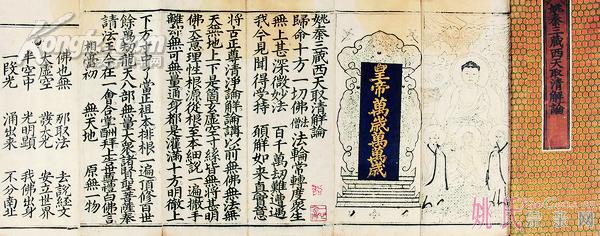 姚秦三藏西天取清解論
皇帝萬歲萬萬歲
姚秦三藏西天取清解論
歸命十方一切佛法僧 法輪常轉度眾生
無上甚深微妙法 百千萬劫難遭遇
我今見聞得受持 願解如來真實意
將古正尊清淨解論講以前無佛無法無
天無地上下是箇玄虛空寸絲皆無將甚明
佛天意理性根源從根至本細說一遍撒手
無可無量通身都是灌滿十方明徹上
下方了當正祖本排根一遍頂修百世
餘萬劫天人八部無量大眾諸賢聖菩薩奉
請法王今在一會各掌酬拜世尊白佛言
想當初 無天地 原無一物
佛也無 那取法 去說經文
大虛空 發本光 安立世界
半空中 光明顯 我佛出身
一段光 涌出來 不分南北